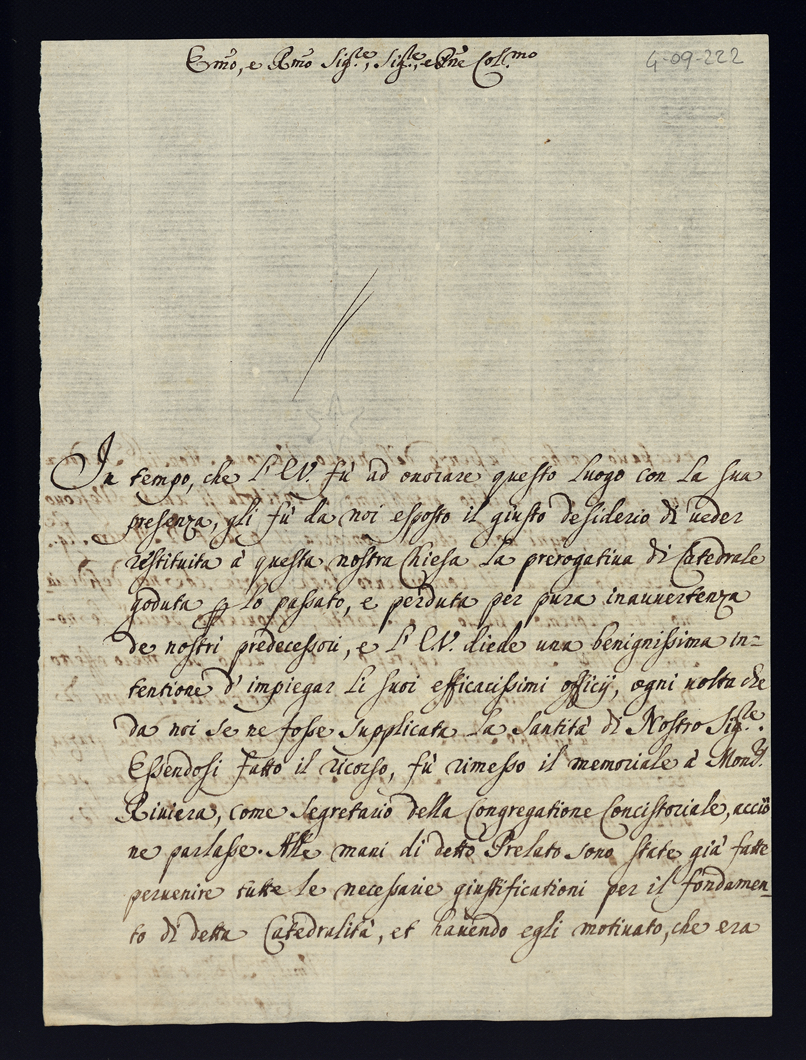 Em̃o, e Rm̃o Sig.re, Sig.re, e Pr̃ne Col.mo
4-09-222
In tempo, che l'E.V. fù ad onorare questo Luogo con La sua
presenza, gli fù da noi esposto il giusto desiderio di ueder
restituita à questa nostra Chiesa La prerogatiua di Catedrale
goduta ꝑ lo passato, e perduta per pura inauuertenza
de nostri predecessori, e l'E.V. diede una benignissima in=
tentione d'impiegar Li suoi efficacissimi officij, ogni uolta che
da noi se ne fosse supplicata La Santità di Nostro Sig.re.
Essendosi fatto il ricorso, fù rimesso il memoriale à Mons.r
Riuiera, come Segretario della Congregatione Concistoriale, acciò
ne parlasse. Alle mani di detto Prelato sono state già fatte
peruenire tutte le necessarie giustificationi per il fondamen=
to di detta Catedralità, et hauendo egli motiuato, che era